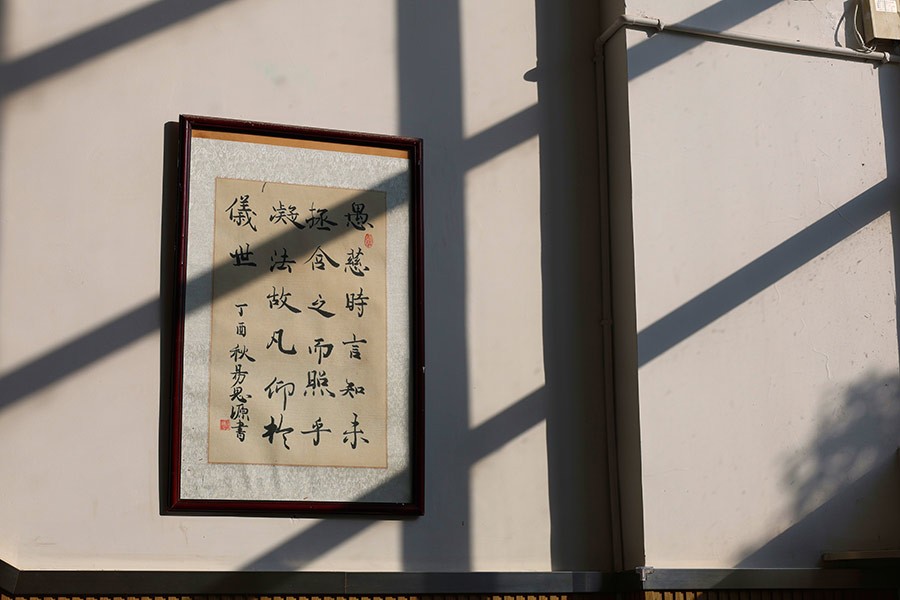 愚慈時言知未
拯含之而照乎
凝法故凡仰於
儀世
丁酉秋易思源書